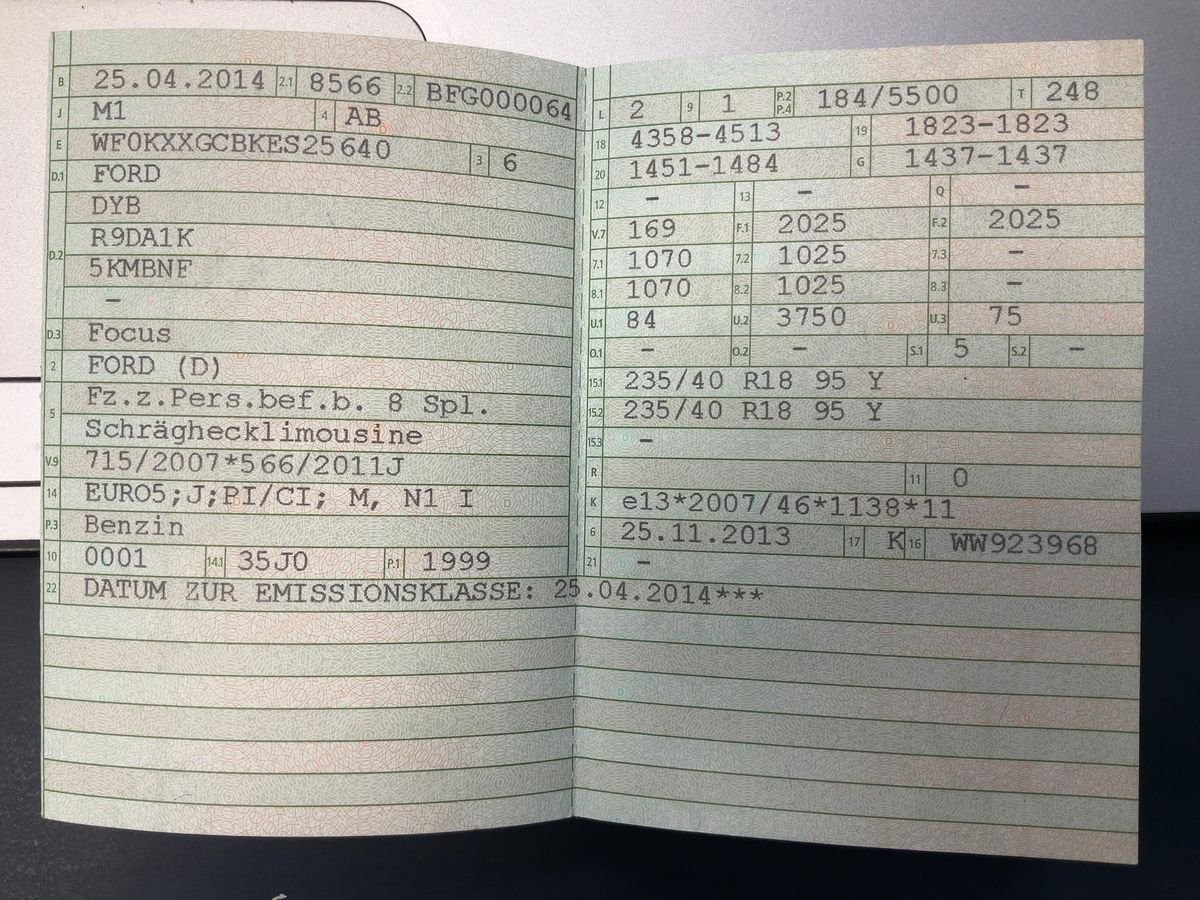 B 25.04.2014 2.1 8566 2.2 BFG000064
J M1 4 AB
E WF0KXXGCBKES25640 3 6
D.1 FORD
D.2 DYB
R9DA1K
5KMBNF
–
D.3 Focus
2 FORD (D)
5 Fz.z.Pers.bef.b. 8 Spl.
Schräghecklimousine
V.9 715/2007*566/2011J
14 EURO5;J;PI/CI; M, N1 I
P.3 Benzin
10 0001 14.1 35J0 P.1 1999
22 DATUM ZUR EMISSIONSKLASSE: 25.04.2014***
L 2 9 1 P.2 P.4 184/5500 T 248
18 4358-4513 19 1823-1823
20 1451-1484 G 1437-1437
12 – 13 – Q –
V.7 169 F.1 2025 F.2 2025
7.1 1070 7.2 1025 7.3 –
8.1 1070 8.2 1025 8.3 –
U.1 84 U.2 3750 U.3 75
O.1 – O.2 – S.1 5 S.2 –
15.1 235/40 R18 95 Y
15.2 235/40 R18 95 Y
15.3 –
R 11 0
K e13*2007/46*1138*11
6 25.11.2013 17 K 16 WW923968
21 –